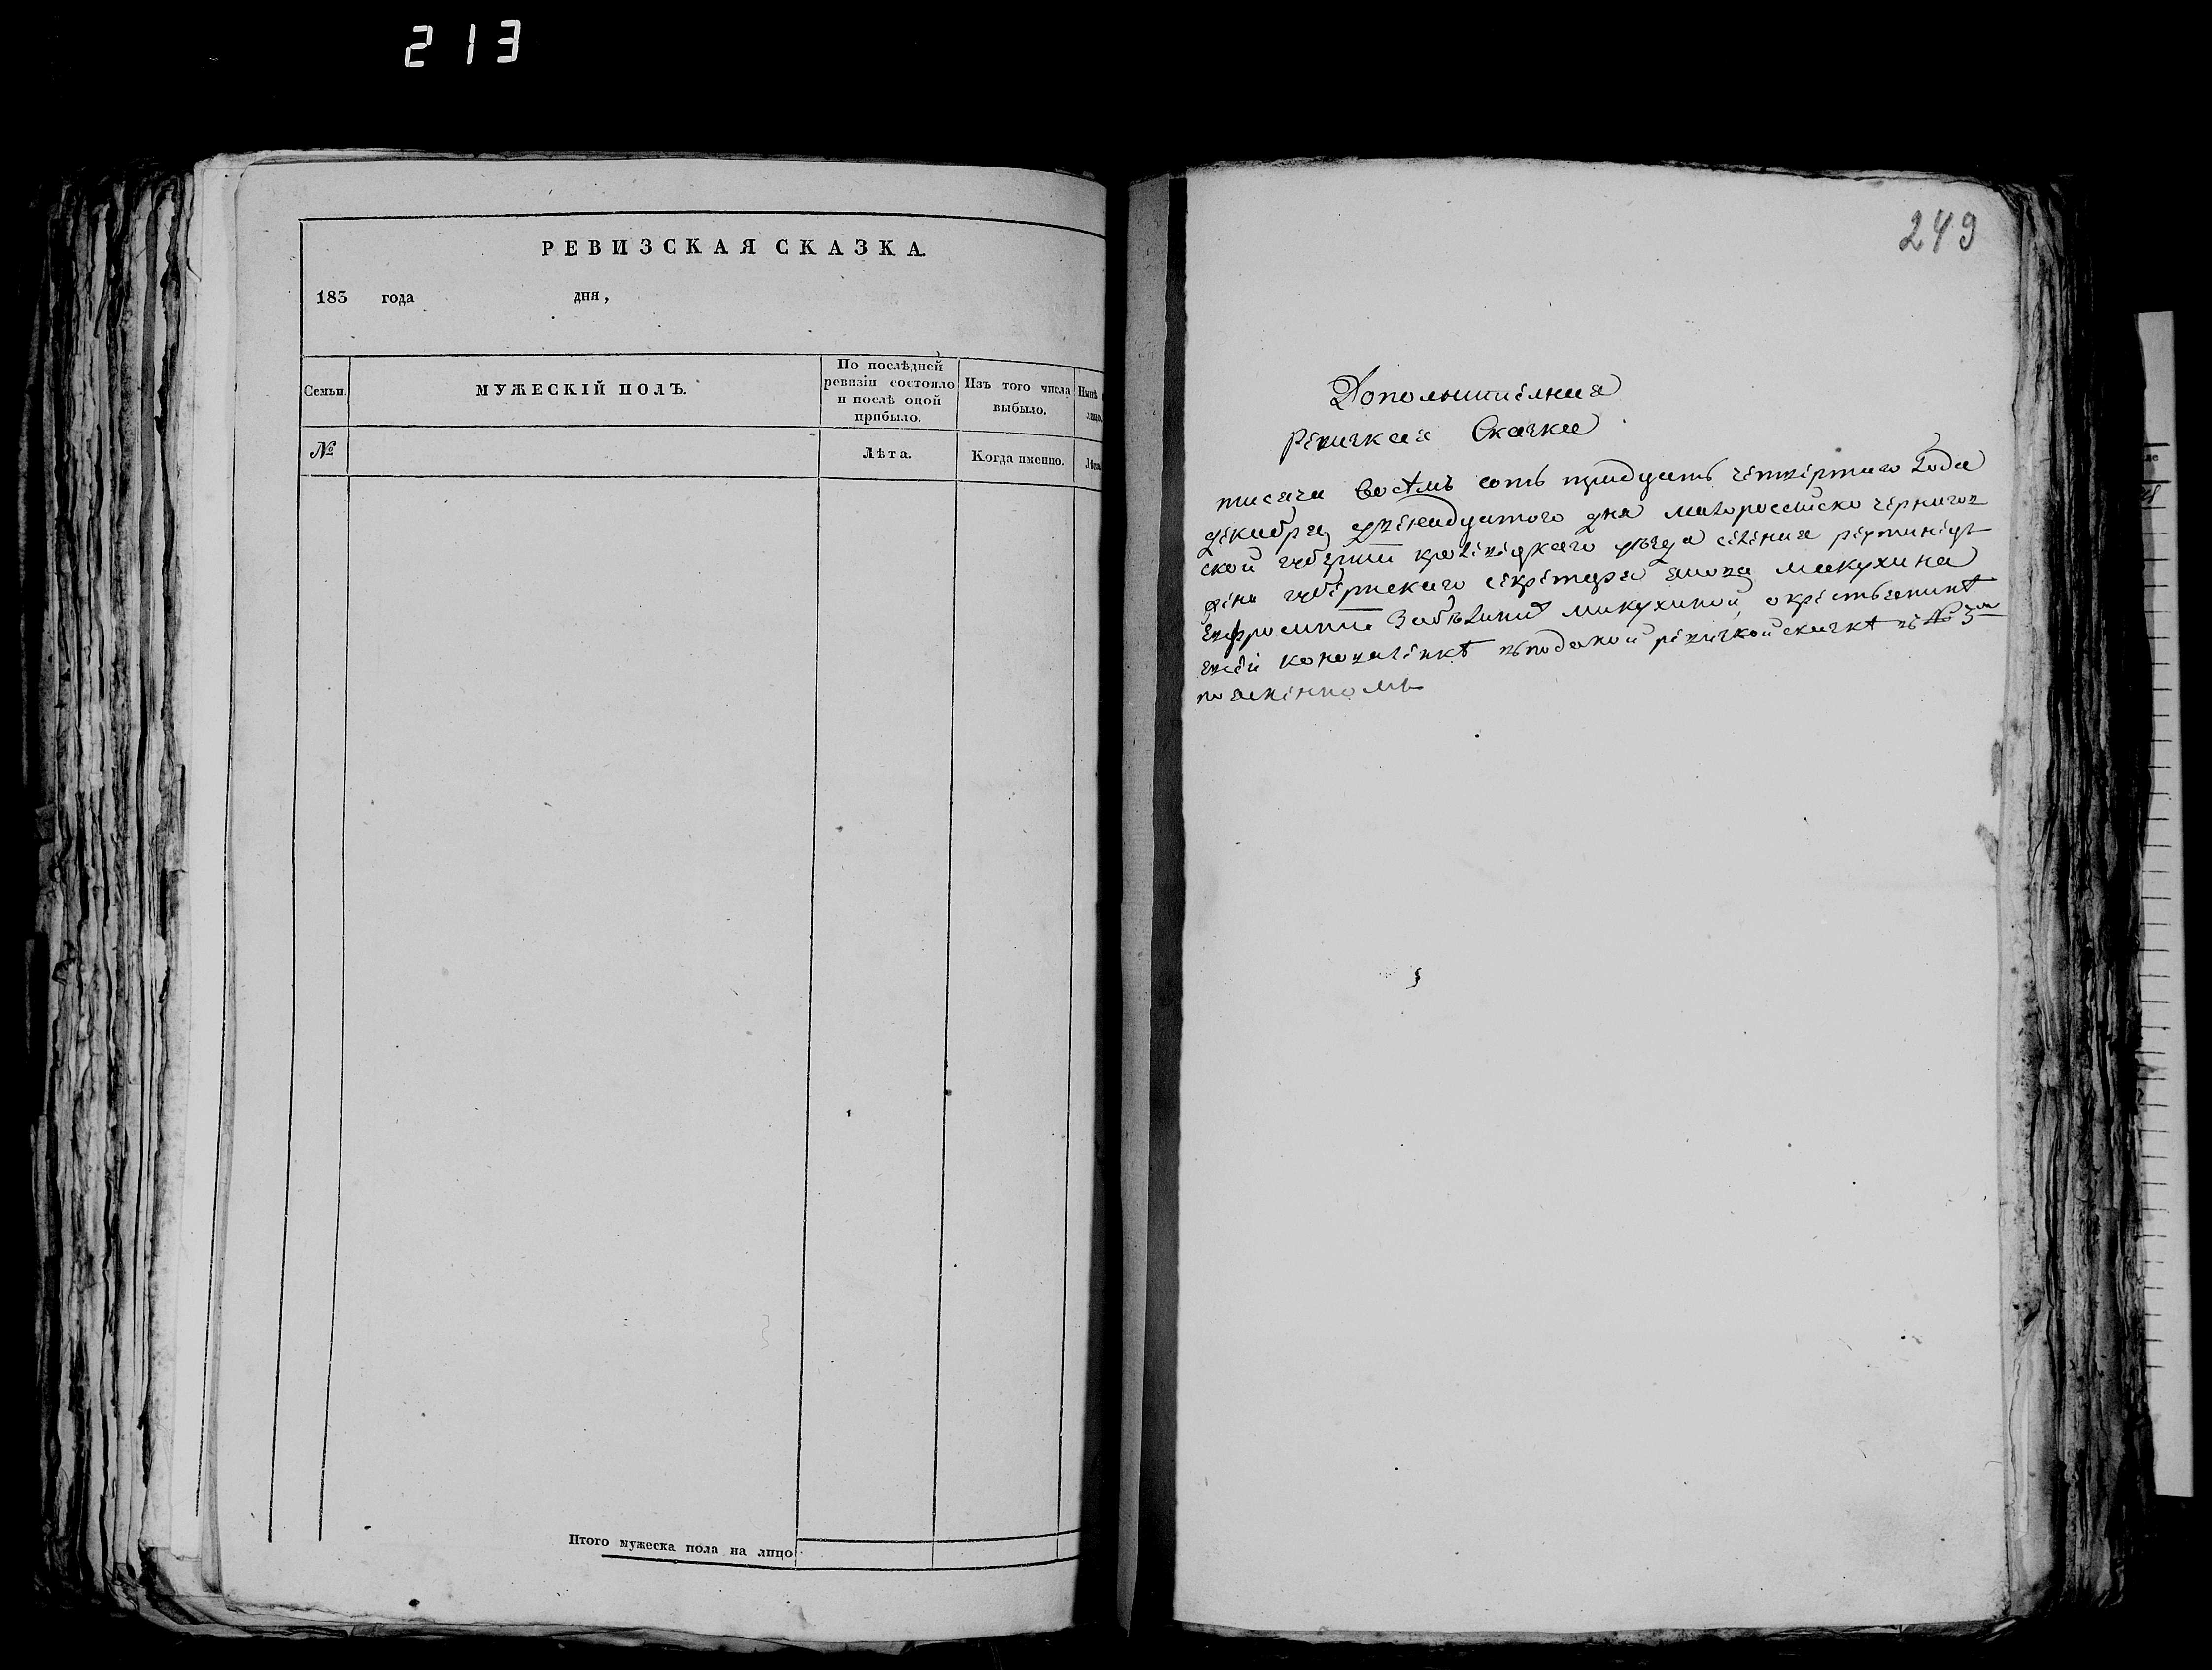 213
РЕВИЗСКАЯ СКАЗКА.
183 года дня,
Семьи.
МУЖЕСКІЙ ПОЛЪ.
По послѣдней
ревизіи состояло
и послѣ оной
прибыло.
Изъ того числа
выбыло.
Нынѣ
лицо.
№
Лѣта.
Когда именно.
Лѣта
Итого мужеска пола на лицо
249
Дополнителная
Ревичкая Скачка
тисяча восѣмъ сотъ тридцать четвертаго Года
декабря двенадцатого дня малороссииско чернигов
ской губернии кролевецкаго уезда селения
губернскаго секретаря макухина
макухиной, о крестьянинѣ
коноваленкѣ въ поданой ревичкой скачкѣ въ № 3м